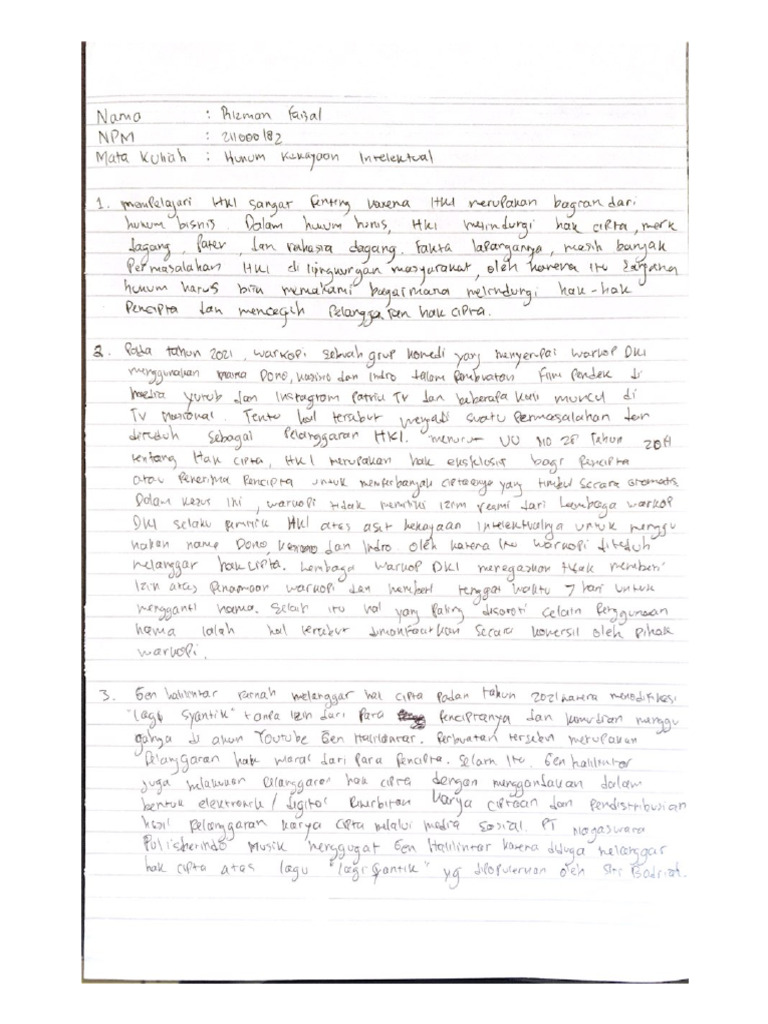 Nama : Rizman Faisal
NPM : 211000182
Mata Kuliah : Hukum Kekayaan Intelektual
1. mempelajari HKI sangat Penting karena HKI merupakan bagian dari
hukum bisnis. Dalam hukum bisnis, HKI melindungi hak cipta, merk
dagang, Paten, dan rahasia dagang. Fakta lapangannya, masih banyak
Permasalahan HKI di lingkungan masyarakat, oleh karena itu Sarjana
hukum harus bisa memahami bagaimana melindungi hak-hak
Pencipta dan mencegah Pelanggaran hak cipta.
2. Pada tahun 2021, warkopi sebuah grup komedi yang menyerupai warkop DKI
menggunakan nama Dono, Kasino dan Indro dalam Pembuatan Film Pendek di
media yutub dan Instagram Patria TV dan beberapa kali muncul di
TV nasional. Tentu hal tersebut menjadi suatu Permasalahan dan
dituduh sebagai Pelanggaran HKI. menurut UU NO 28 Tahun 2014
tentang Hak cipta, HKI merupakan hak eksklusif bagi Pencipta
atau Penerima Pencipta untuk memperbanyak ciptaanya yang timbul secara otomatis.
Dalam kasus ini, warkopi tidak memiliki izin resmi dari Lembaga warkop
DKI selaku pemilik HKI atas aset kekayaan intelektualnya untuk menggu
nakan nama Dono, Kasino dan Indro. oleh karena itu warkopi dituduh
melanggar hak cipta. Lembaga warkop DKI menegaskan tidak memberi
izin atas Penamaan warkopi dan memberi tenggat waktu 7 hari untuk
mengganti nama. Selain itu hal yang Paling disoroti selain Penggunaan
nama ialah hal tersebut dimanfaatkan secara komersil oleh pihak
warkopi.
3. Gen halilintar pernah melanggar hak cipta pada tahun 2021 karena memodifikasi
"lagi Syantik" tanpa izin dari Para Penciptanya dan kemudian menggu
gahnya di akun Youtube Gen Halilintar. Perbuatan tersebut merupakan
Pelanggaran hak moral dari Para Pencipta. Selain itu, Gen halilintar
juga melakukan Pelanggaran hak cipta dengan menggandakan dalam
bentuk elektronik / digital Penerbitan karya ciptaan dan Pendistribusian
hasil Pelanggaran karya cipta melalui media sosial. PT Nagaswara
Publisherindo Musik menggugat Gen Halilintar karena diduga melanggar
hak cipta atas lagu "lagi Syantik" yg dipopulerkan oleh Siti Badriah.